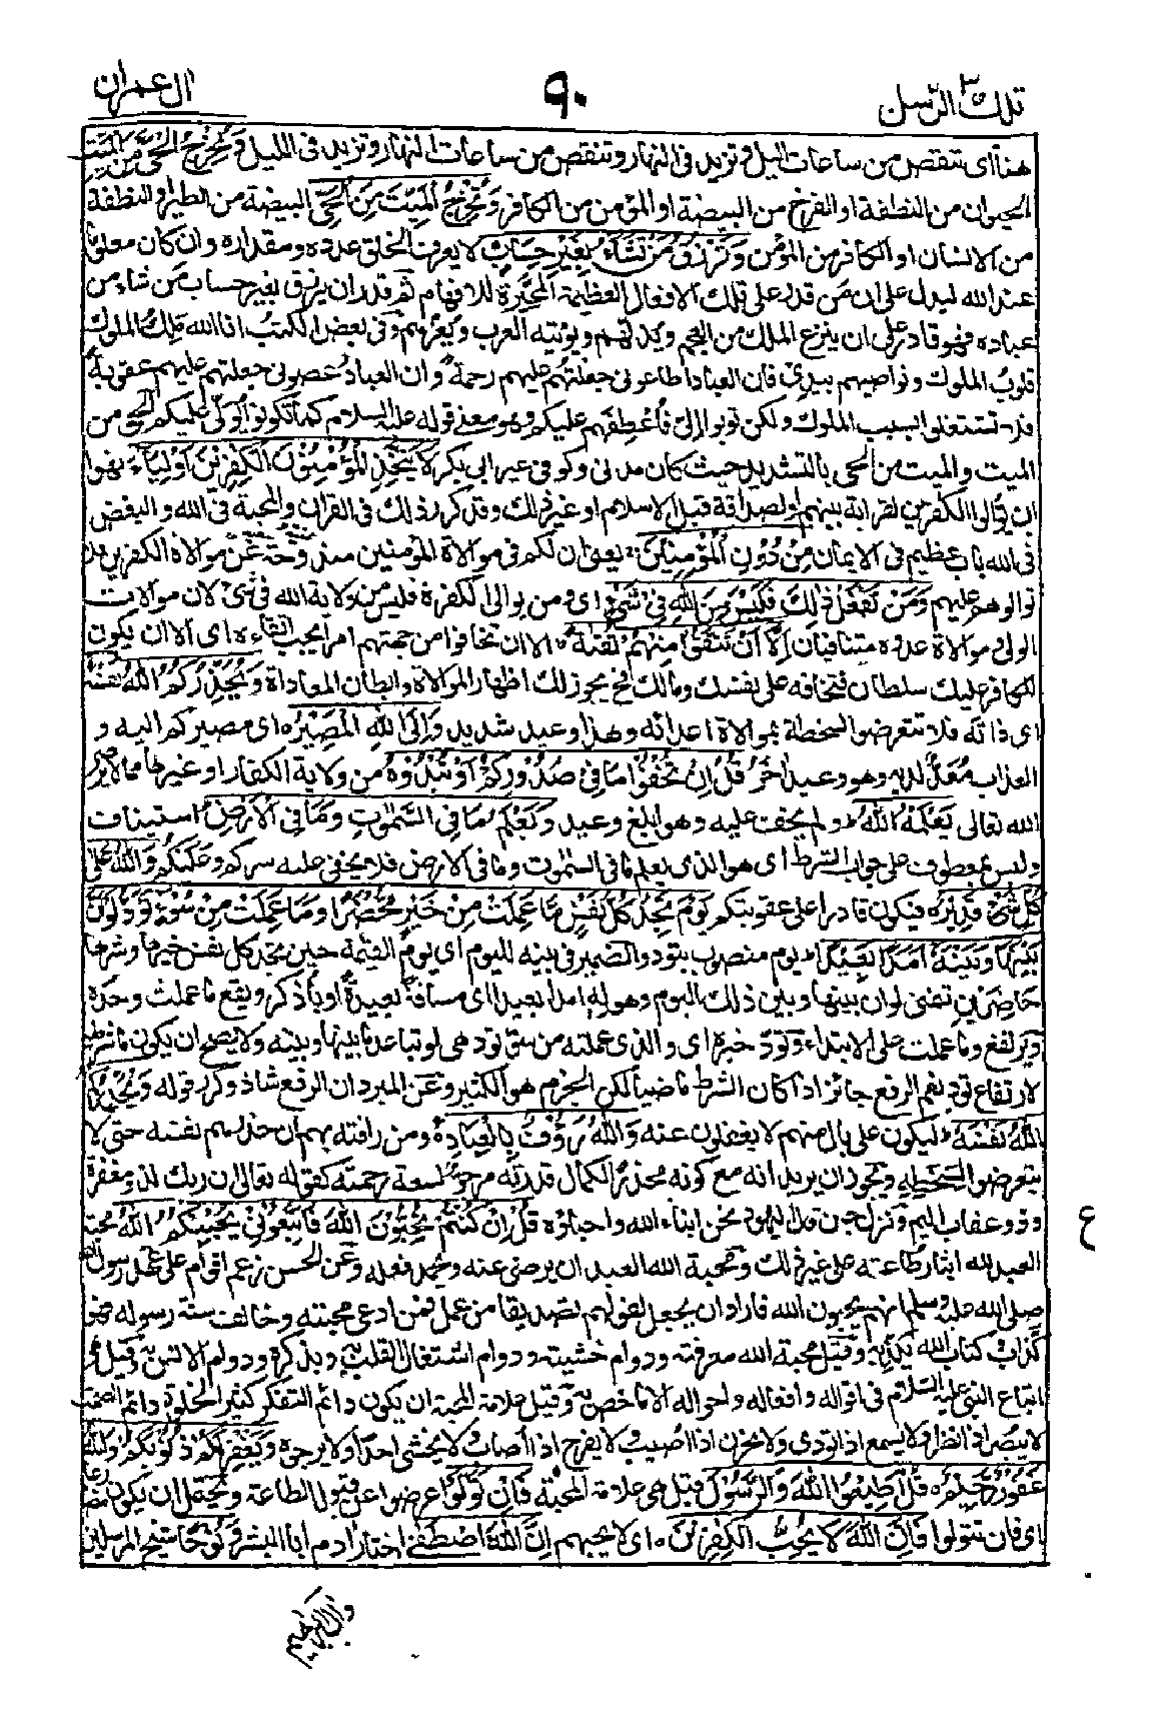 تلك الرسل ٣
٩٠
ال عمران
هنا اى تنقص من ساعات اليل و تزيد فى النهار و تنقص من ساعات النهار و تزيد فى الليل وَتُخْرِجُ الْحَىَّ مِنَ الْمَيِّتِ
الحيوان من النطفة او الفرخ من البيضة او المؤمن من الكافر وَتُخْرِجُ الْمَيِّتَ مِنَ الْحَىِّ البيضة من الطير او النطفة
من الانسان او الكافر من المؤمن وَتَرْزُقُ مَنْ تَشَاءُ بِغَيْرِ حِسَابٍ لا يعرف الخلق عدده و مقداره و ان كان معلوما
عند الله ليدل على ان من قدر على تلك الافعال العظيمة المحيّرة للافهام ثم قدر ان يرزق بغير حساب من شاء من
عباده فهو قادر على ان ينزع الملك من العجم و يذلهم و يؤتيه العرب و يعزهم و فى بعض الكتب انا الله ملك الملوك
قلوب الملوك و نواصيهم بيدى فان العباد اطاعونى جعلتهم عليهم رحمة و ان العباد عصونى جعلتهم عليهم عقوبة
فلا تشتغلوا بسبب الملوك و لكن توبوا الىّ فاعطفهم عليكم وهو معنى قوله عليه السلام كما تكونوا يولى عليكم الحى من
الميت والميت من الحى بالتشديد حيث كان مدنى وكوفى غير ابى بكر لَا يَتَّخِذِ الْمُؤْمِنُونَ الْكٰفِرِيْنَ اَوْلِيَاءَ نهوا
ان يوالوا الكفرين لقرابة بينهم او لصداقة قبل الاسلام او غير ذلك وقد كرر ذلك فى القران والمحبة فى الله و البغض
فى الله باب عظيم فى الايمان مِنْ دُوْنِ الْمُؤْمِنِيْنَ يعنى ان لكم فى موالاة المؤمنين مندوحة عن موالاة الكفرين فلا
توالوهم عليهم وَمَنْ يَفْعَلْ ذٰلِكَ فَلَيْسَ مِنَ اللهِ فِىْ شَىْءٍ اى ومن يوالى الكفرة فليس من ولاية الله فى شئ لان موالات
الولى و موالاة عدوه متنافيان اِلَّا اَنْ تَتَّقُوْا مِنْهُمْ تُقٰىةً الا ان تخافوا من جهتهم امرا يجب اتقاءه اى الا ان يكون
للكافر عليك سلطان فتخافه على نفسك ومالك فح يجوز لك اظهار الموالاة وابطان المعاداة وَيُحَذِّرُكُمُ اللهُ نَفْسَهٗ
اى ذاته فلا تتعرضوا لسخطه بموالاة اعدائه و هذا وعيد شديد وَاِلَى اللهِ الْمَصِيْرُ اى مصيركم اليه و
العذاب معدّ لديه وهو وعيد اخر قُلْ اِنْ تُخْفُوْا مَا فِىْ صُدُوْرِكُمْ اَوْ تُبْدُوْهُ من ولاية الكفار او غيرها مما لا يرضى
الله تعالى يَعْلَمْهُ اللهُ ولم يخف عليه وهو ابلغ وعيد وَيَعْلَمُ مَا فِى السَّمٰوٰتِ وَمَا فِى الْاَرْضِ استيناف
وليس بمعطوف على جواب الشرط اى هو الذى يعلم ما فى السموت وما فى الارض فلا يخفى عليه سركم وعلنكم وَاللهُ عَلٰى
كُلِّ شَىْءٍ قَدِيْرٌ فيكون قادرا على عقوبتكم يَوْمَ تَجِدُ كُلُّ نَفْسٍ مَّا عَمِلَتْ مِنْ خَيْرٍ مُّحْضَرًا وَمَا عَمِلَتْ مِنْ سُوْءٍ تَوَدُّ لَوْ اَنَّ
بَيْنَهَا وَبَيْنَهٗ اَمَدًا بَعِيْدًا يوم منصوب بتود والضمير فى بينه لليوم اى يوم القيمة حين تجد كل نفس خيرها وشرها
حاضرين تتمنى لو ان بينها وبين ذلك اليوم وهوله امدا بعيدا اى مسافة بعيدة او باذكر ويقع ما عملت وحده
ويرتفع وما عملت على الابتداء وتودّ خبره اى والذى عملته من سوء تود هى لو تباعد ما بينها وبينه ولا يصح ان يكون ما شرطية
لارتفاع تود نعم الرفع جائز اذا كان الشرط ماضيا لكن الجزم هو الكثير و عن المبرد ان الرفع شاذ وكرر قوله وَيُحَذِّرُكُمُ
اللهُ نَفْسَهٗ ليكون على بال منهم لا يغفلون عنه وَاللهُ رَءُوْفٌ بِالْعِبَادِ ومن رافته بهم ان حذرهم نفسه حتى لا
يتعرضوا لسخطه ويجوز ان يريد انه مع كونه محذرا لكمال قدرته مرجو لسعة رحمته كقوله تعالى ان ربك لذو مغفرة
وذو عقاب اليم ونزل حين قال اليهود نحن ابناء الله واحباؤه قُلْ اِنْ كُنْتُمْ تُحِبُّوْنَ اللهَ فَاتَّبِعُوْنِىْ يُحْبِبْكُمُ اللهُ محبة
العبد لله ايثار طاعته على غير ذلك ومحبة الله العبد ان يرضى عنه ويحمد فعله وعن الحسن زعم اقوام على عهد رسول الله
صلى الله عليه وسلم انهم يحبون الله فاراد ان يجعل لقولهم تصديقا من عمل فمن ادعى محبته وخالف سنة رسوله فهو
كذاب وكتاب الله يكذبه وقيل محبة الله معرفته ودوام خشيته ودوام اشتغال القلب به وبذكره ودوام الانس به وقيل هى
اتباع النبى عليه السلام فى اقواله وافعاله واحواله الا ما خص به وقيل علامة المحبة ان يكون دائم التفكر كثير الخلوة دائم الصمت
لا يبصر اذا نظر ولا يسمع اذا نودى ولا يحزن اذا اصيب ولا يفرح اذا اصاب ولا يخشى احدا ولا يرجوه وَيَغْفِرْ لَكُمْ ذُنُوْبَكُمْ وَاللهُ
غَفُوْرٌ رَّحِيْمٌ قُلْ اَطِيْعُوا اللهَ وَالرَّسُوْلَ قيل هى علامة المحبة فَاِنْ تَوَلَّوْا اعرضوا عن قبول الطاعة ويحتمل ان يكون مضارعا
اى فان تتولوا فَاِنَّ اللهَ لَا يُحِبُّ الْكٰفِرِيْنَ اى لا يحبهم اِنَّ اللهَ اصْطَفٰى اختار ادم ابا البشر وَنُوْحًا شيخ المرسلين
ع